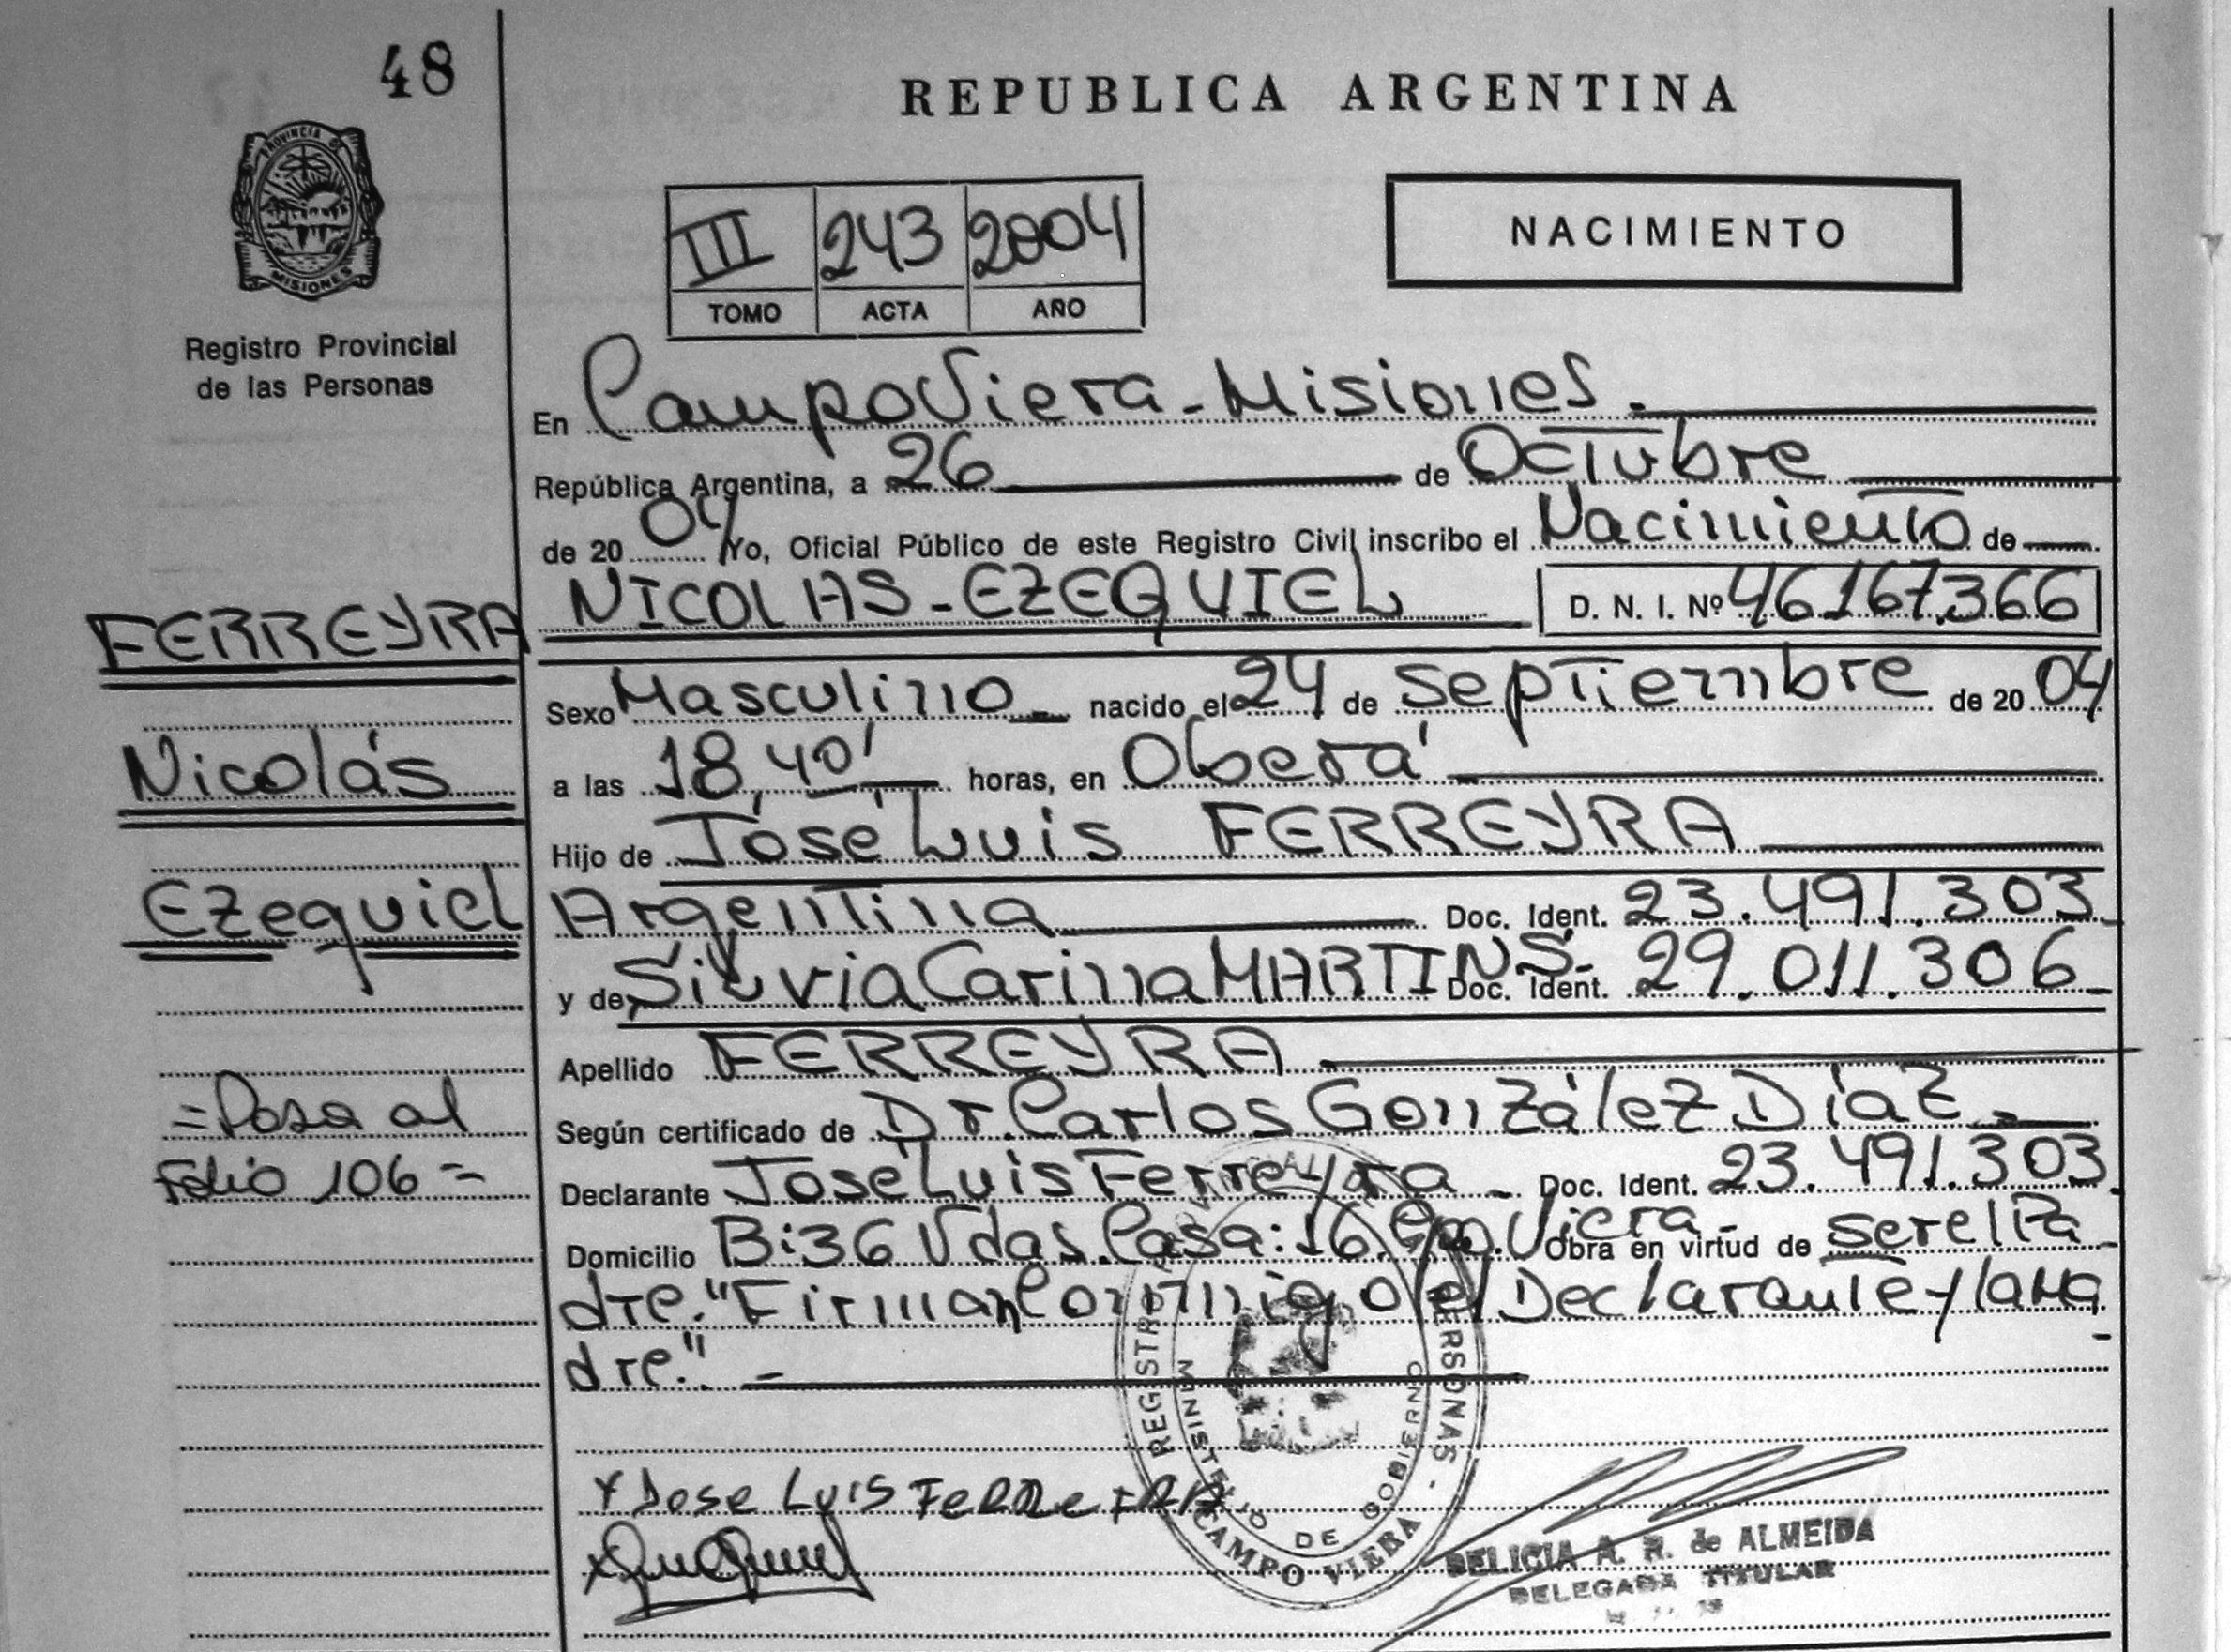 48
REPUBLICA ARGENTINA
PROVINCIA DE
MISIONES
Registro Provincial
de las Personas
III 243 2004
TOMO ACTA AÑO
NACIMIENTO
En Campo Viera - Misiones.
República Argentina, a 26 de Octubre
de 20 04 Yo, Oficial Público de este Registro Civil inscribo el Nacimiento de
NICOLAS - EZEQUIEL D. N. I. Nº 46.167.366
FERREYRA
Nicolás
Ezequiel
Sexo Masculino nacido el 24 de septiembre de 20 04
a las 18,40' horas, en Oberá
Hijo de José Luis FERREYRA
Argentina Doc. Ident. 23.491.303
y de Silvia Carina MARTINS- Doc. Ident. 29.011.306
Apellido FERREYRA
Según certificado de Dr. Carlos González Díaz
Declarante José Luis Ferreyra Doc. Ident. 23.491.303
Domicilio B: 36 Vdas. Casa: 16. Cpo. Viera - Obra en virtud de ser el Pa
dre. "Firman Conmigo el Declarante y la Ma
dre". -
= Pasa al
Folio 106 =
x Jose Luis Ferreyra
REGISTRO PERSONAS -
MINISTERIO DE GOBIERNO
CAMPO VIERA
DELICIA A. R. de ALMEIDA
DELEGADA TITULAR